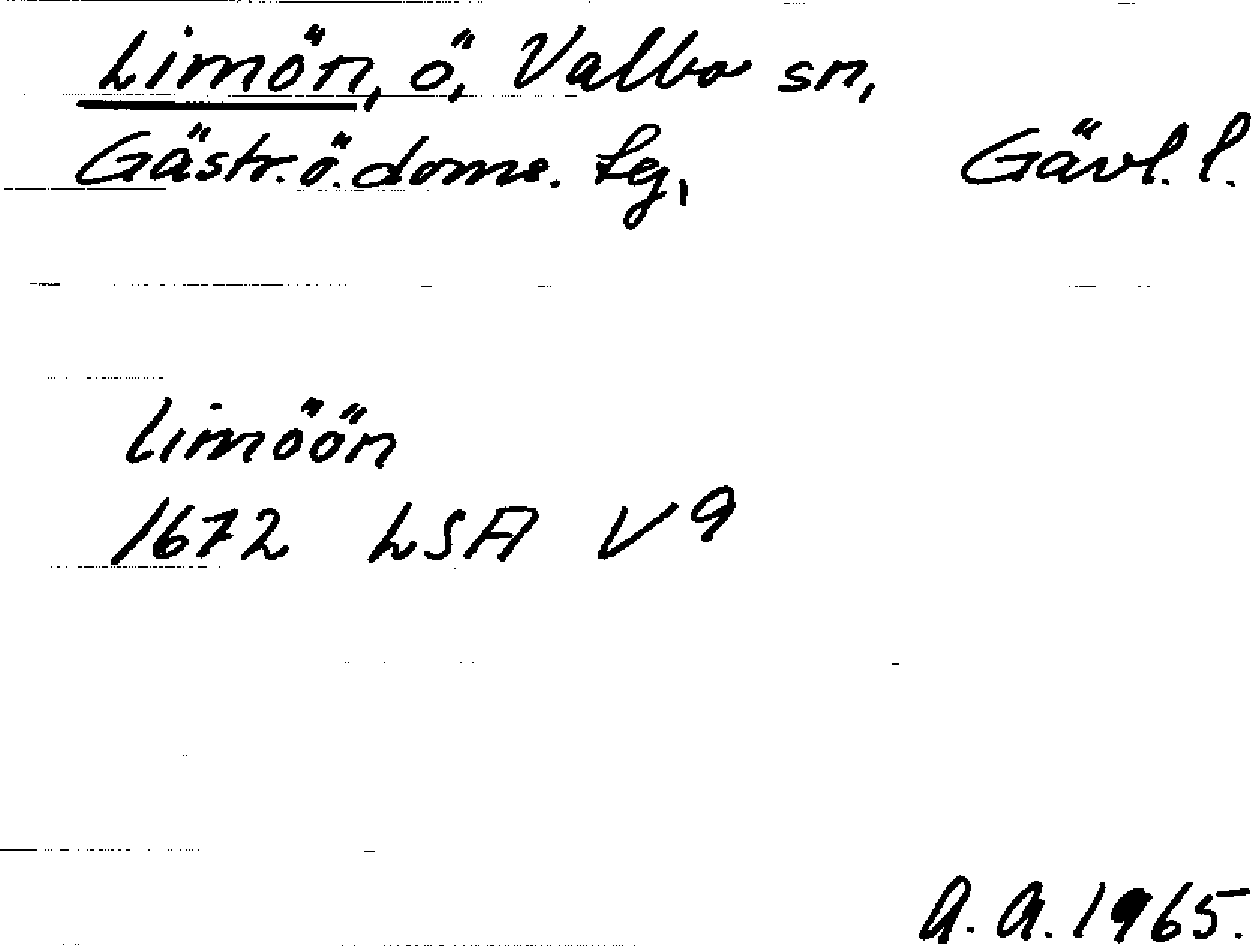 Limön, ö, Valbo sn,
Gästr. ö. doms. tg, Gävl. l.
Limöön
1672 LSA V 9
A. A. 1965.